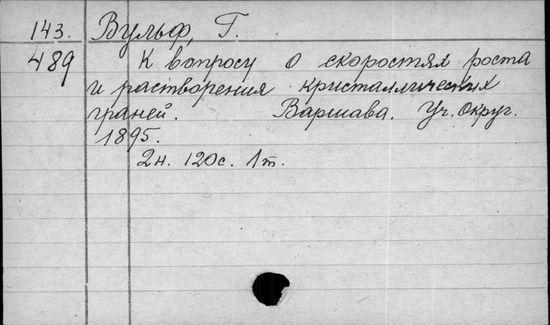 143. Вульф, Г.
489 К вопросу о скоростях роста
и растворения кристаллических
граней. Варшава. Уч. Округ.
1895.
2н. 120с. 1т.